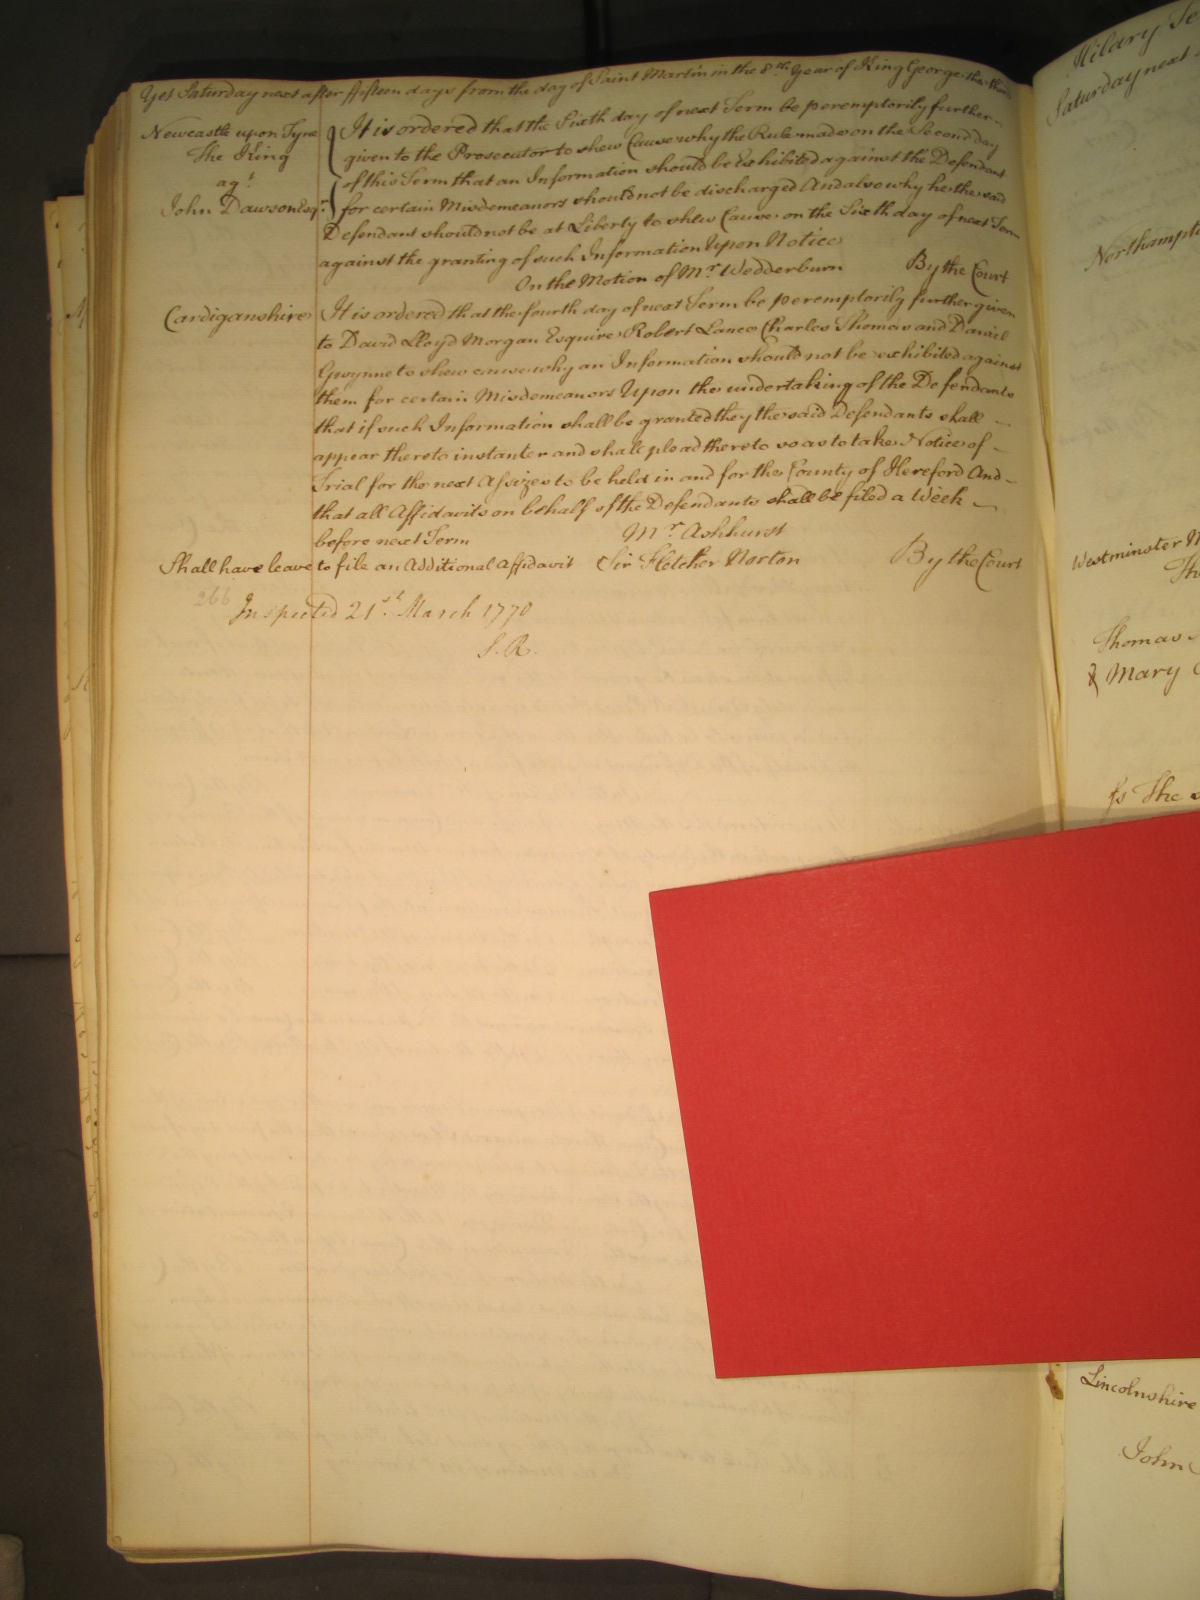 Yet Saturday next after fifteen days from the day of Saint Martin in the 8th Year of King George the third
Newcastle upon Tyne
The King
agt
John Dawson Esqr
It is ordered that the Sixth day of next Term be peremptorily further
given to the Prosecutor to shew Cause why the Rule made on the Second day
of this Term that an Information should be Exhibited against the Defendant
for certain Misdemeanors should not be discharged And also why he the said
Defendant should not be at Liberty to shew Cause on the Sixth day of next Term
against the granting of such Information Upon Notice
On the Motion of Mr Wedderburn By the Court
Cardiganshire It is ordered that the fourth day of next Term be peremptorily further given
to David Lloyd Morgan Esquire Robert Lance Charles Thomas and Daniel
Gwynne to shew cause why an Information should not be exhibited against
them for certain Misdemeanors Upon the undertaking of the Defendants
that if such Information shall be granted they the said Defendants shall
appear thereto instanter and shall plead thereto so as to take Notice of
Trial for the next Assizes to be held in and for the County of Hereford And
that all Affidavits on behalf of the Defendants shall be filed a Week
before next Term Mr Ashhurst
Shall have leave to file an Additional Affidavit Sir Fletcher Norton By the Court
266
Inspected 21st March 1770
S. R.
Hilary
Saturday next
Westminster
Thomas
& Mary
The
Lincolnshire
John